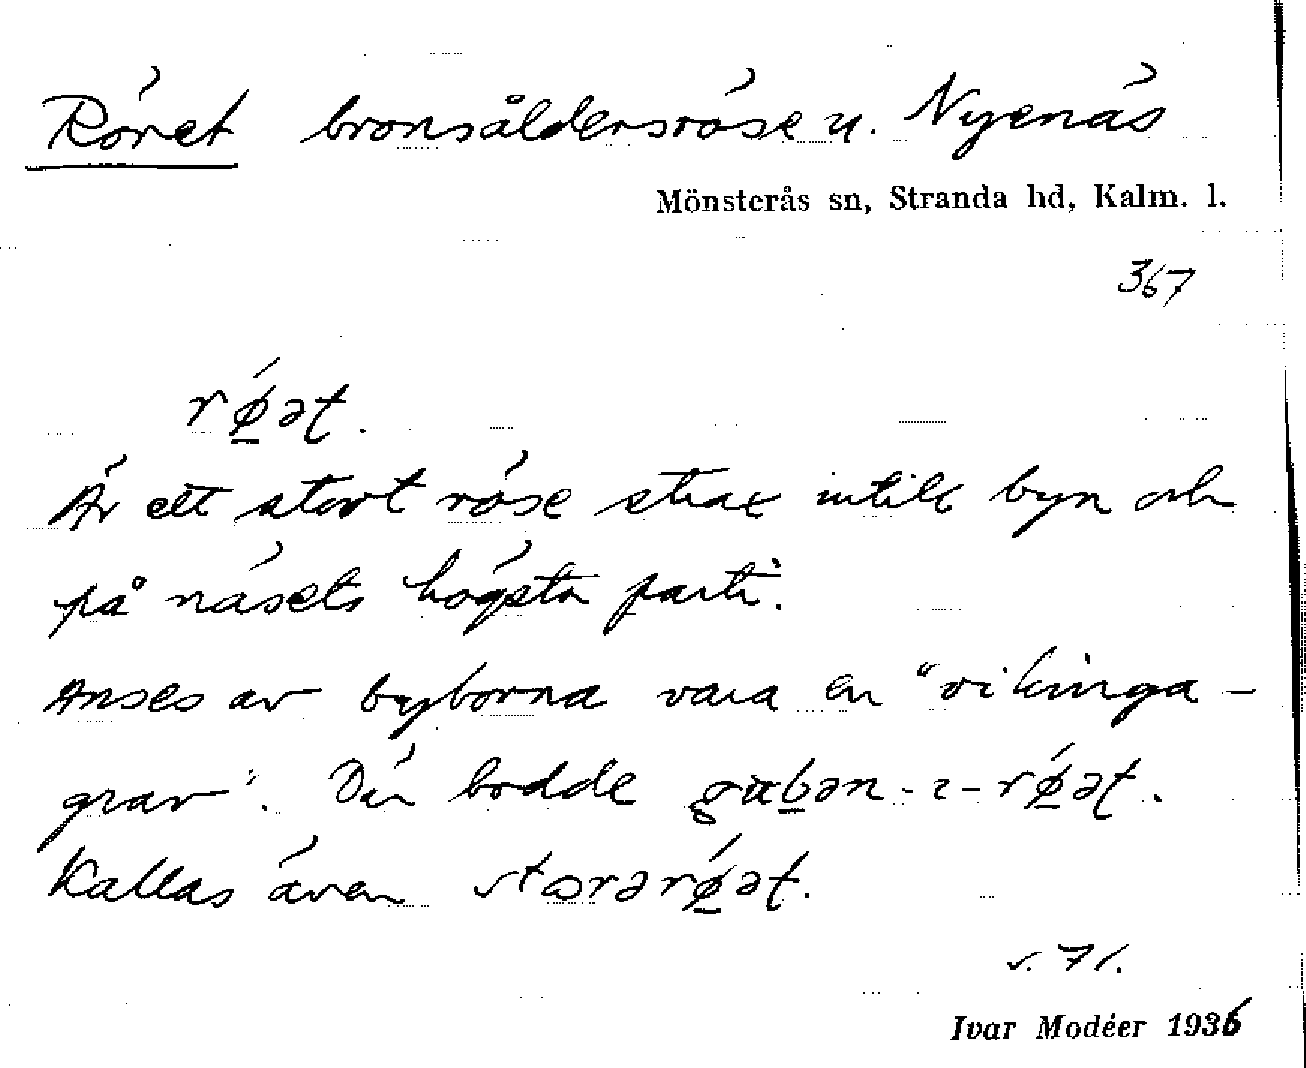 Röret bronsåldersröse u. Nyenäs
Mönsterås sn, Stranda hd, Kalm. l.
367
rǿ̱ət.
Är ett stort röse strax intill byn och
på näsets högsta parti.
Anses av byborna vara en "vikinga-
grav". Där bodde guḇən-ı-rǿ̱ət.
Kallas även storərǿ̱ət.
s. 71.
Ivar Modéer 1936